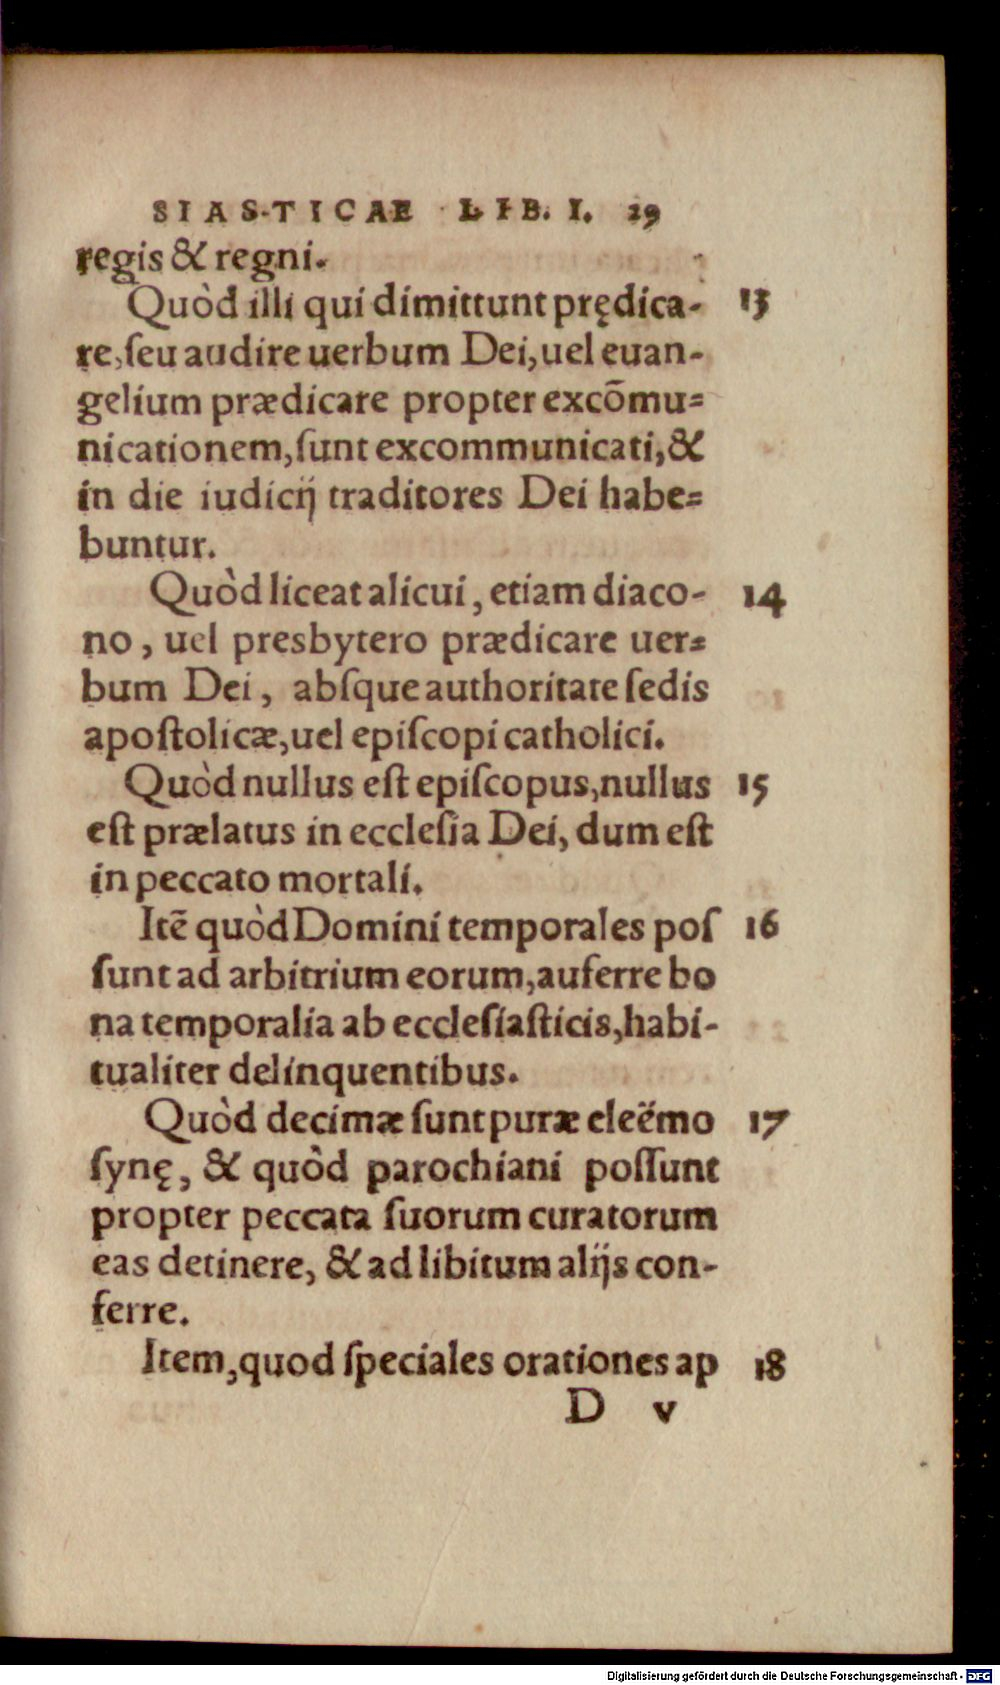 SIASTICAE LIB. I. 29
regis & regni.
Quòd illi qui dimittunt prędica- 13
re, ſeu audire uerbum Dei, uel euan-
gelium prædicare propter excõmu-
nicationem, ſunt excommunicati, &
in die iudicij traditores Dei habe-
buntur.
Quòd liceat alicui, etiam diaco- 14
no, uel presbytero prædicare uer-
bum Dei, abſque authoritate ſedis
apoſtolicæ, uel epiſcopi catholici.
Quòd nullus eſt epiſcopus, nullus 15
eſt prælatus in eccleſia Dei, dum eſt
in peccato mortali.
Itē quòd Domini temporales poſ 16
ſunt ad arbitrium eorum, auferre bo
na temporalia ab eccleſiaſticis, habi-
tualiter delinquentibus.
Quòd decimæ ſunt puræ eleëmo 17
ſynę, & quòd parochiani poſſunt
propter peccata ſuorum curatorum
eas detinere, & ad libitum alijs con-
ferre.
Item, quod ſpeciales orationes ap 18
D v
Digitalisierung gefördert durch die Deutsche Forschungsgemeinschaft - DFG